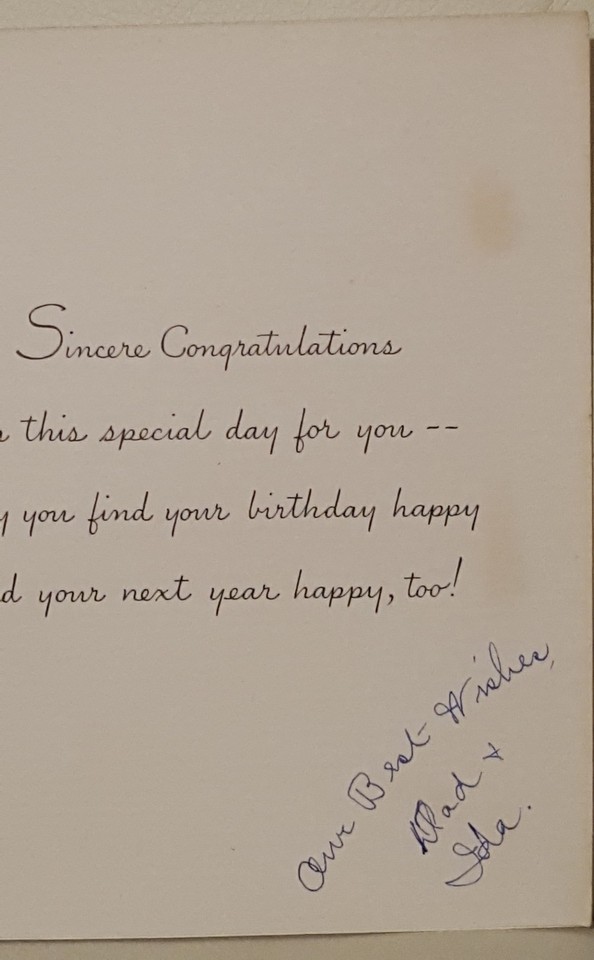 Sincere Congratulations
this special day for you --
you find your birthday happy
your next year happy, too!
Our Best Wishes,
Dad +
Ida.